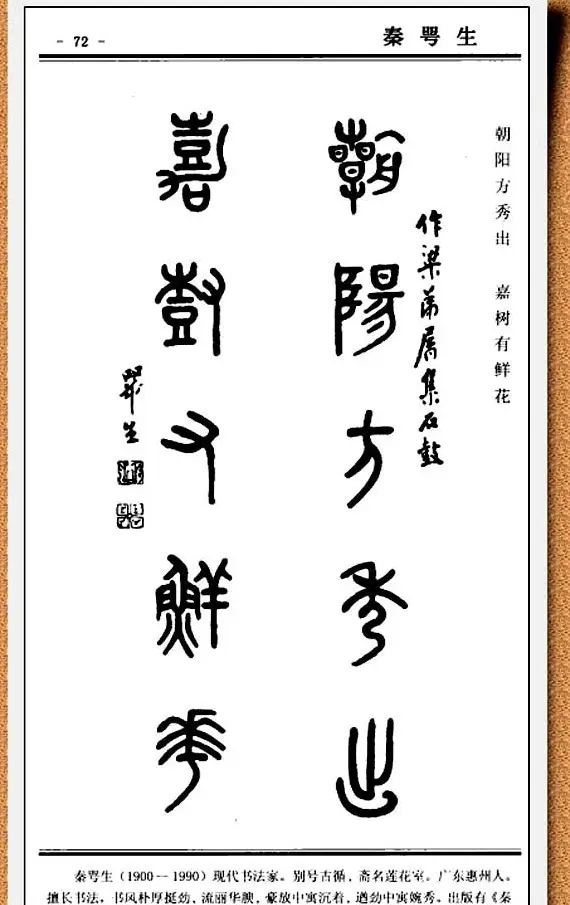 - 72 -
秦咢生
朝阳方秀出 嘉树有鲜花
朝陽方秀出
作梁 属集石鼓
嘉尌又鮮華
咢生
秦咢生（1900—1990）现代书法家。别号古循，斋名莲花室。广东惠州人。
擅长书法，书风朴厚挺劲，流丽华腴，豪放中寓沉着，遒劲中寓婉秀。出版有《秦